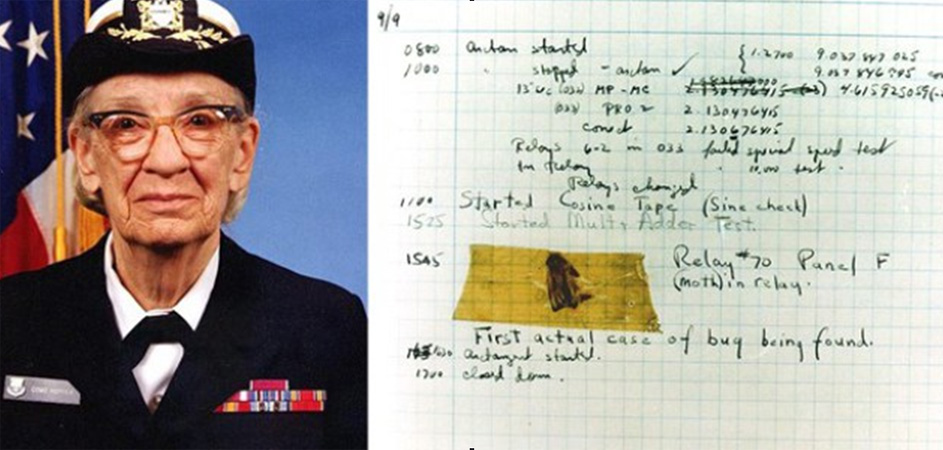 9/9
0800 antan started { 1.2700 9.037 847 025
1000 " stopped - antan ✓ 9.037 846 995
13"uc (032) MP - MC 2.130476415 4.615925059(-2)
(033) PRO.2 2.130476415
correct 2.130676415
Relays 6-2 in 033 failed special speed test
in Relay " 10.000 test .
Relays changed
1100 Started Cosine Tape (Sine check)
1525 Started Mult+Adder Test.
1545 Relay #70 Panel F
(moth) in relay.
First actual case of bug being found.
1630 antangent started.
1700 closed down.